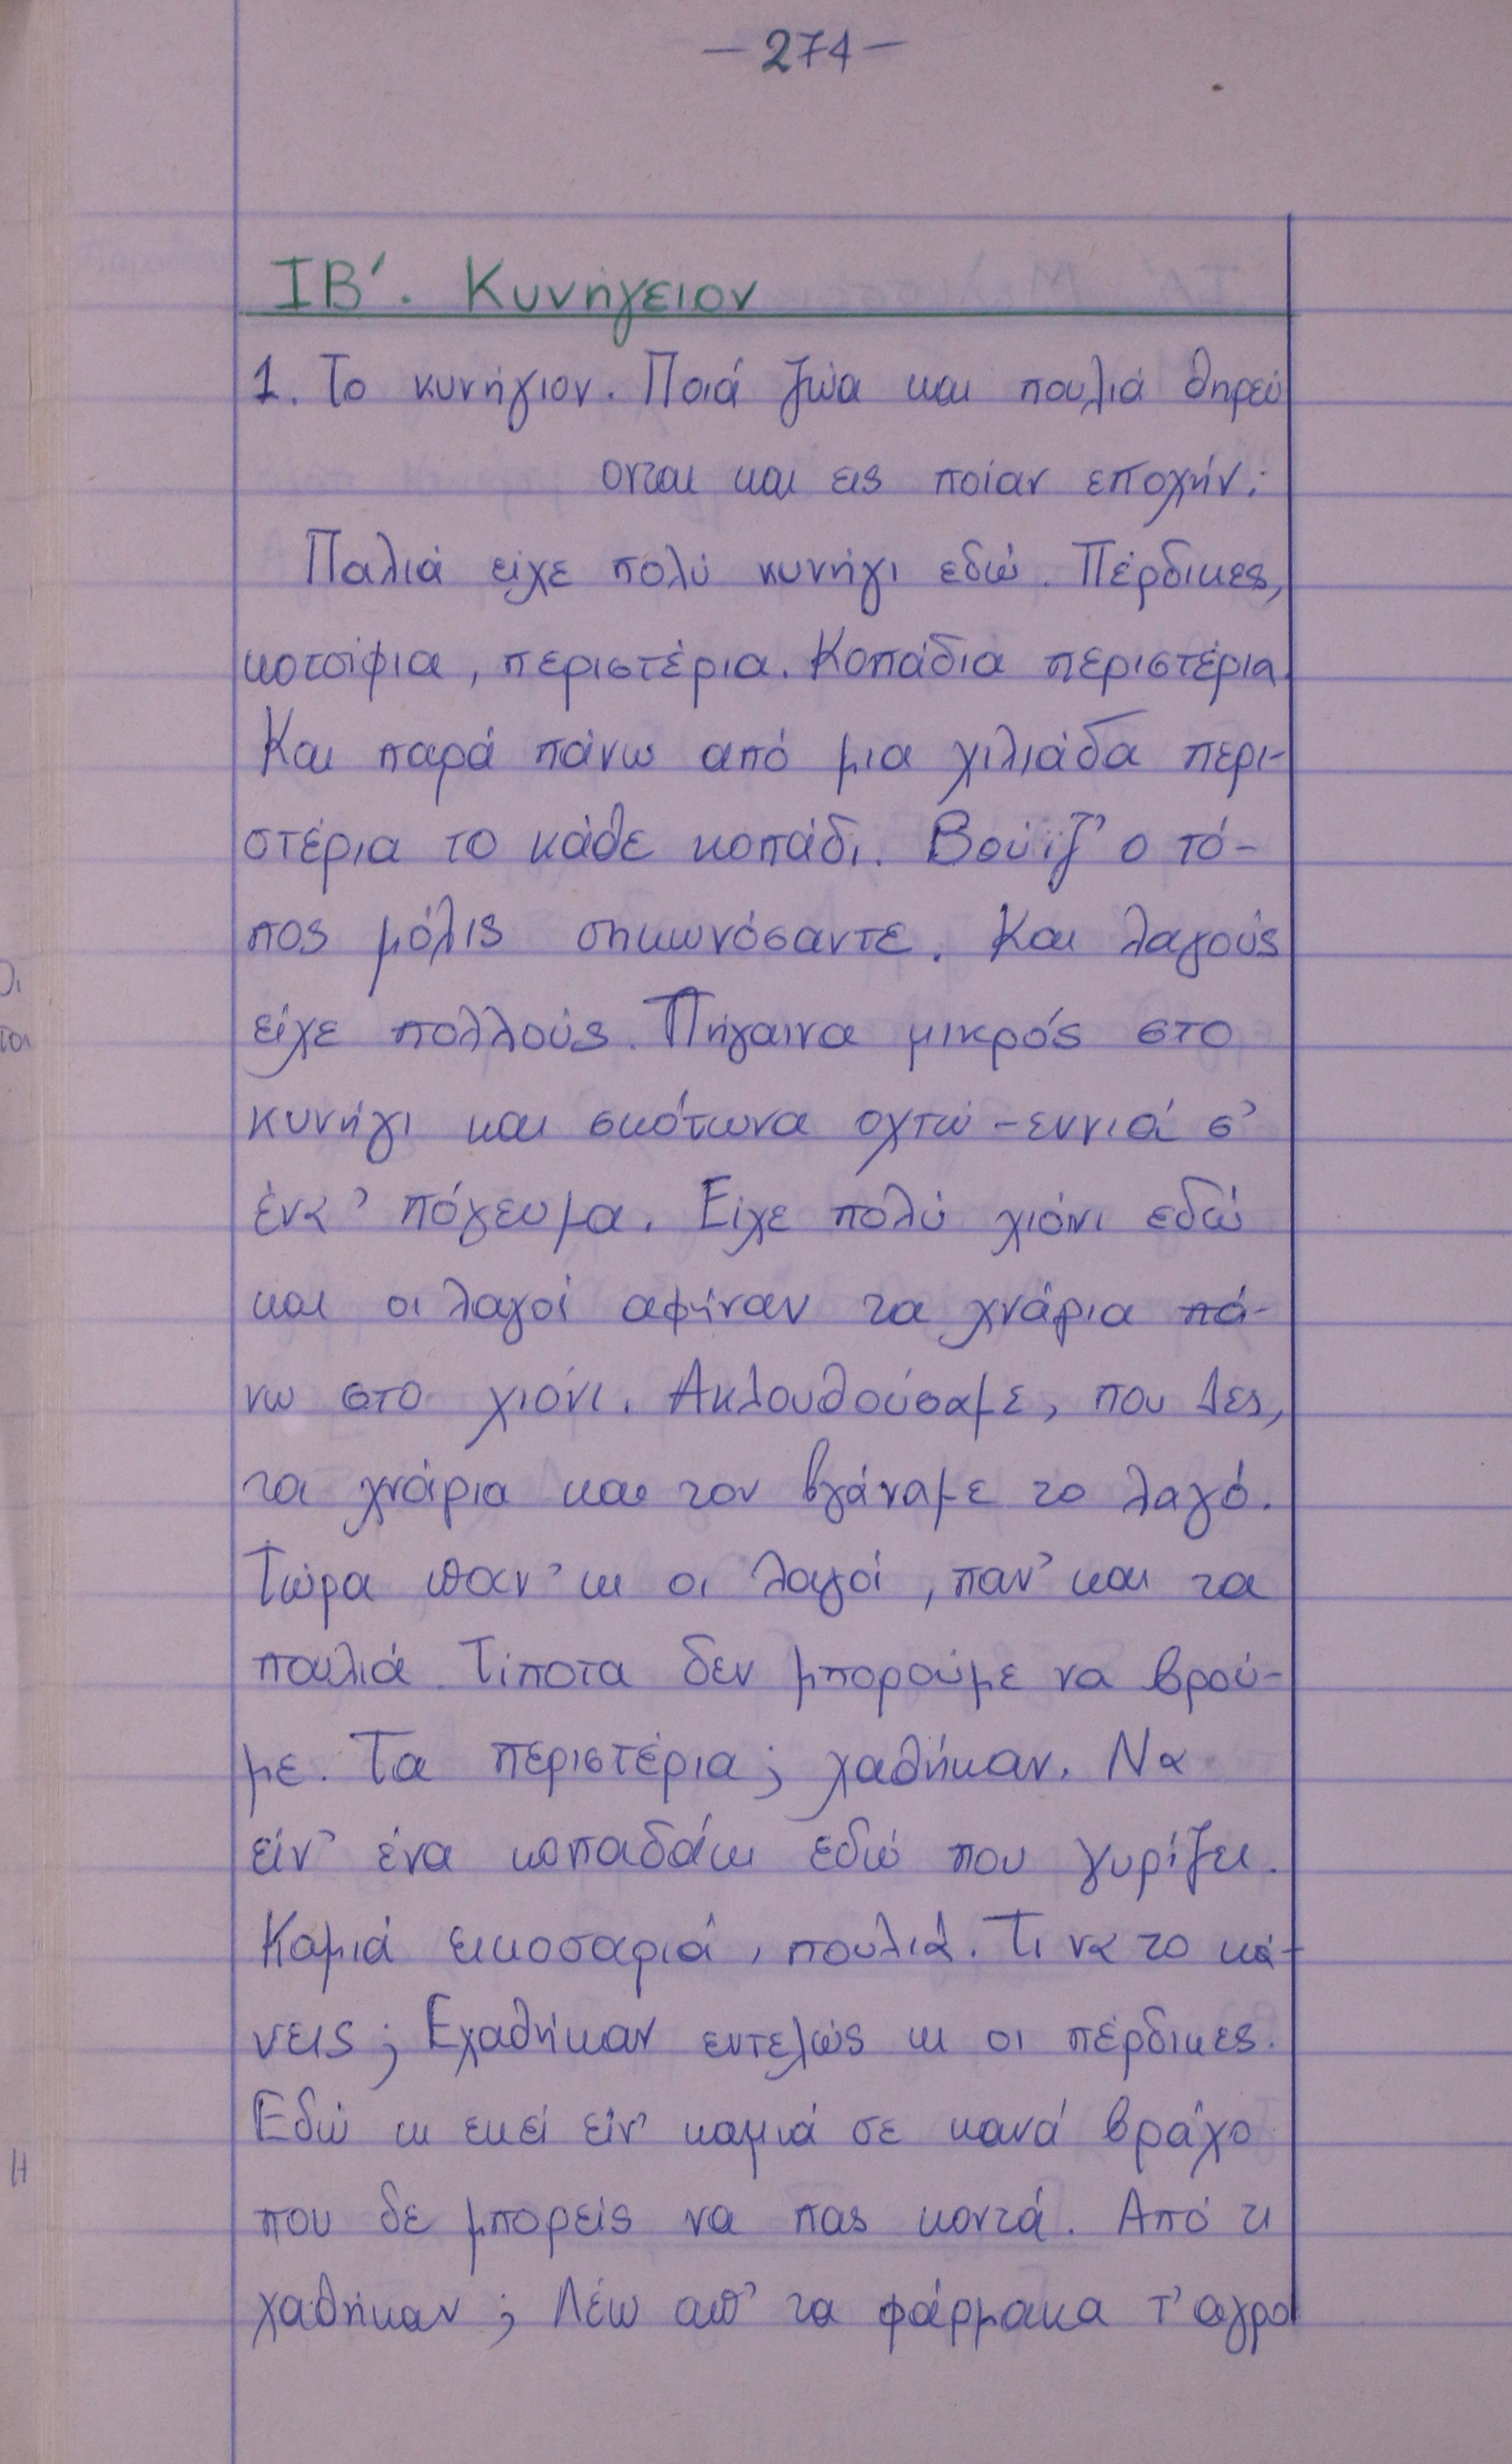 —274—
ΙΒ'. Κυνήγειον
1. Το κυνήγιον. Ποιά ζώα και πουλιά θηρεύ
ονται και εις ποίαν εποχήν;
Παλιά είχε πολύ κυνήγι εδώ. Πέρδικες,
κοτσίφια, περιστέρια. Κοπάδια περιστέρια.
Και παρά πάνω από μια χιλιάδα περι-
στέρια το κάθε κοπάδι. Βούϊζ' ο τό-
πος μόλις σηκωνόσαντε. Και λαγούς
είχε πολλούς. Πήγαινα μικρός στο
κυνήγι και σκότωνα οχτώ - εννιά σ'
ένα' πόγευμα. Είχε πολύ χιόνι εδώ
και οι λαγοί αφήναν τα χνάρια πά-
νω στο χιόνι. Ακλουθούσαμε, που λες,
τα χνάρια και τον βγάναμε το λαγό.
Τώρα παν' κι οι λαγοί, παν' και τα
πουλιά. Τίποτα δεν μπορούμε να βρού-
με. Τα περιστέρια; χαθήκαν. Να
είν' ένα κοπαδάκι εδώ που γυρίζει.
Καμιά εικοσαριά, πουλιά. Τι να το κά-
νεις; Εχαθήκαν εντελώς κι οι πέρδικες.
Εδώ κι εκεί είν' καμιά σε κανά βράχο
που δε μπορείς να πας κοντά. Από τι
χαθήκαν; Λέω απ' τα φάρμακα τ' αγρο